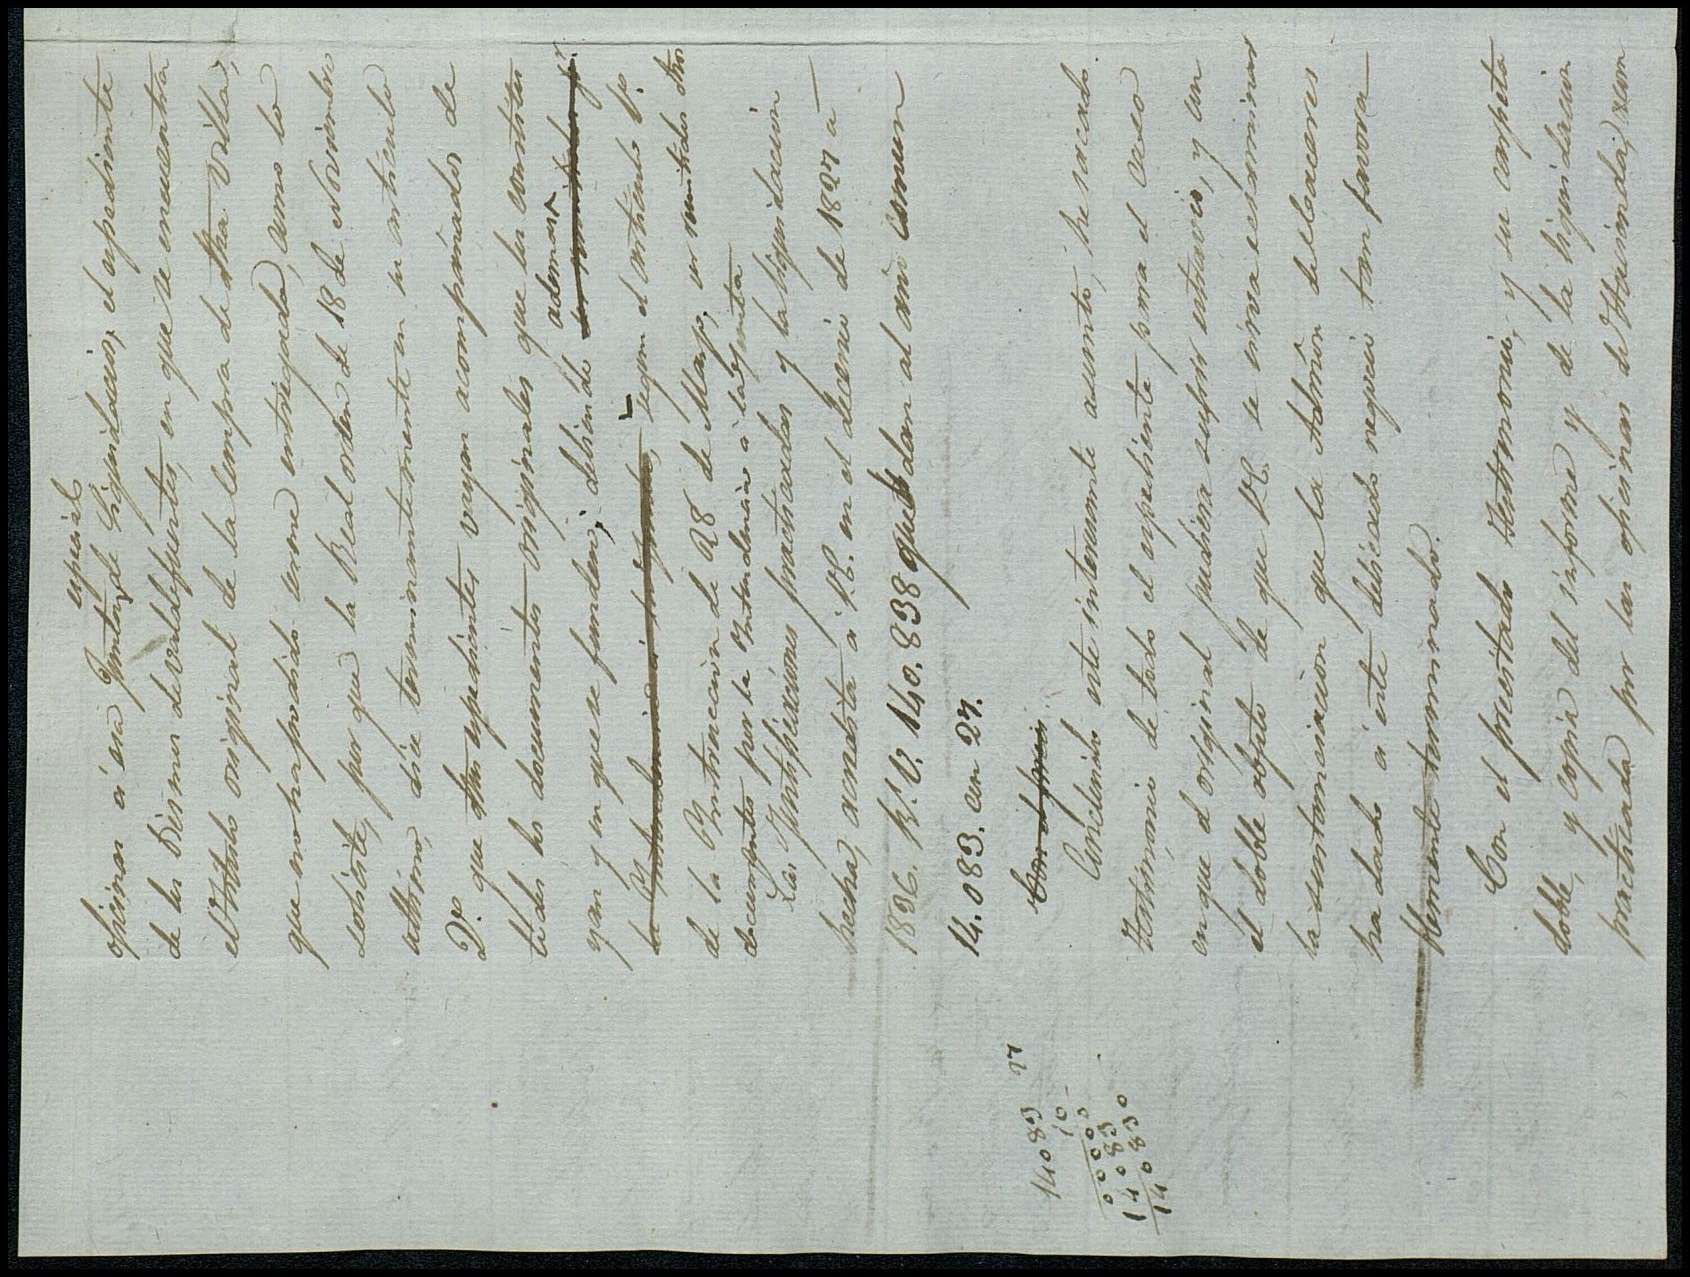 especial
oficinas á esa Junta de Liquidacion, el espediente
de los Diezmos de Valdefuentes, en que se encuentra
el Titulo original de la compra de dha. Villa,
que no ha podido serme entregada, como lo
solicité, por que la Real orden de 18 de Noviembre
ultimo, dice terminantemente en su articulo
2.º que dhos espedientes vayan acompañados de
todos los documentos originales que los
yan y en que se funden; debiendo además
la Intendencia, segun el articulo
de la Instruccion de 28 de Mayo, ser remitidos dhos
documentos por la Intendencia á la Junta
Las Justificaciones practicadas y la liquidacion
hecha, acredita á V.E. en el decenio de 1827 á
1836. R.s V.n 140.838 que dan al año comun
14.083. con 27.
Con el fin
Concluido este interesante asunto, he sacado
testimonio de todo el espediente para el caso
en que el original pudiera sufrir estravio, y con
el doble objeto de que V.E. se sirva ecsaminar
la sustanciacion que la Admon de
ha dado á este delicado negocio tan favora
blemente terminado.
Con el precitado testimonio, y su carpeta
doble, y copia del informe y de la liquidacion
practicada por las oficinas de Hacienda,
14083 27
10
00000
14083
140830